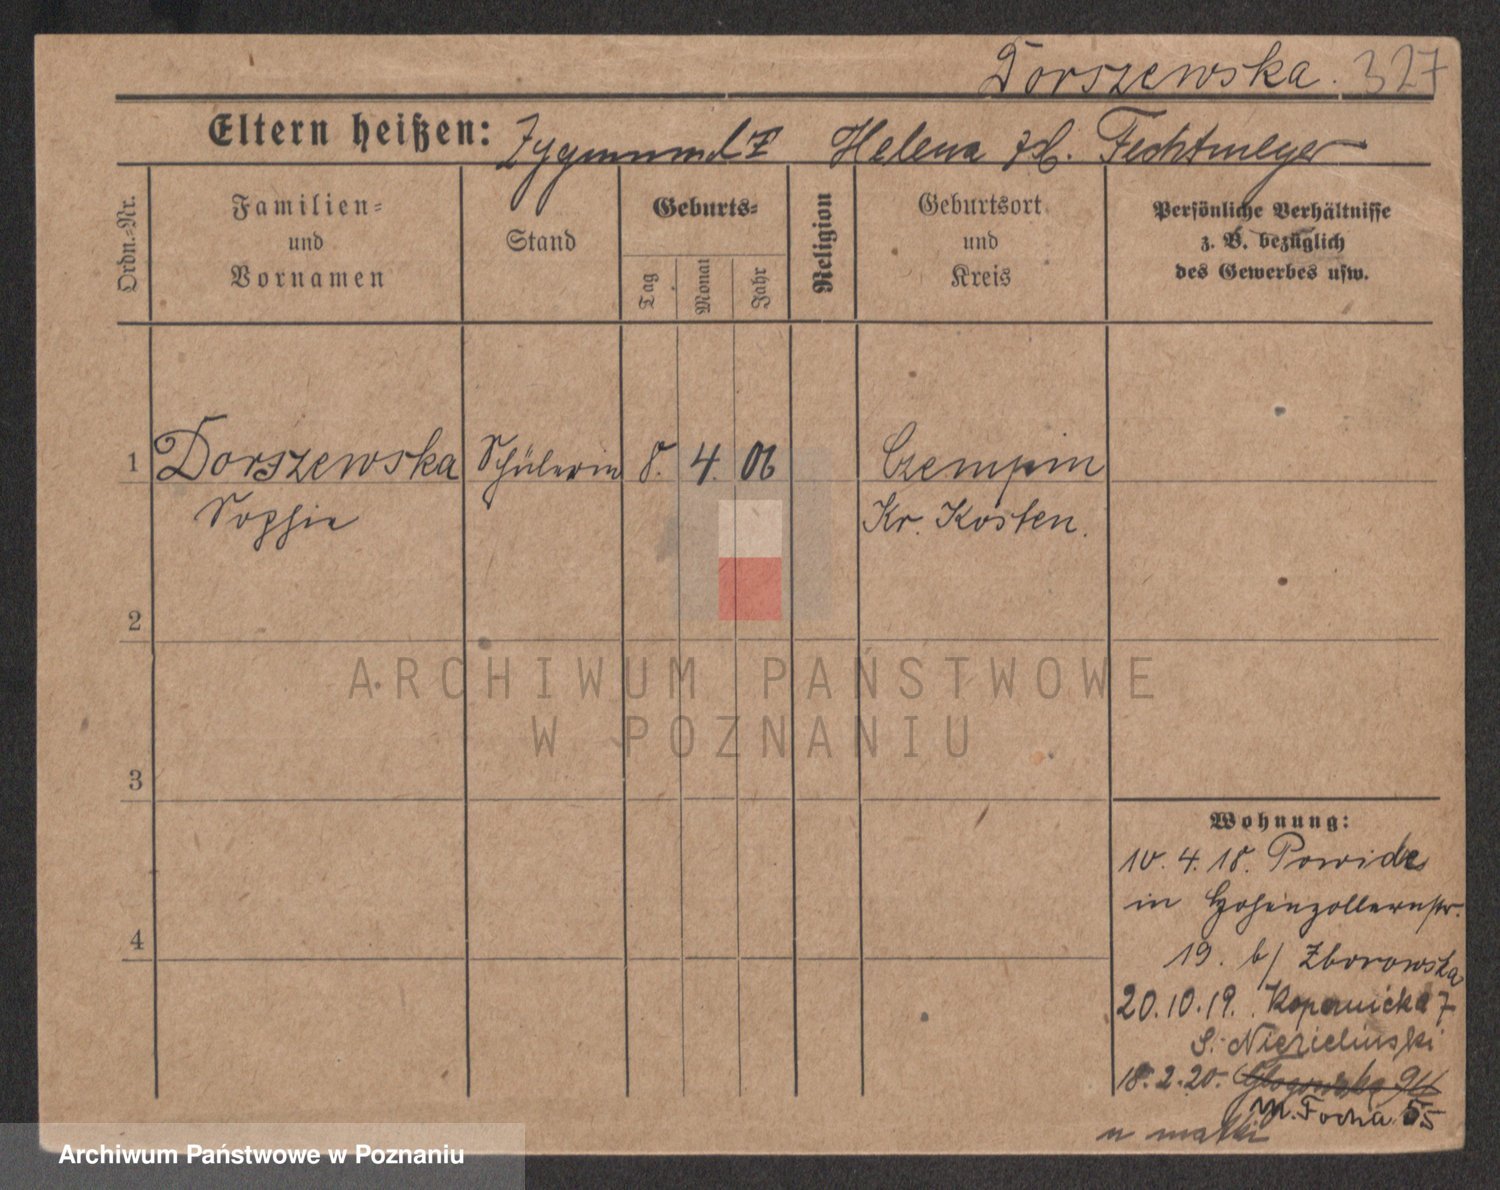 Dorszewska. 327
Eltern heißen: Zygmund Helena Fechtmeyer
Ordn.-Nr.
Familien-
und
Vornamen
Stand
Geburts-
Tag
Monat
Jahr
Religion
Geburtsort
und
Kreis
Persönliche Verhältnisse
z. B. bezüglich
des Gewerbes usw.
1 Dorszewska Schülerin 8. 4. 06 Czempin
Sophie Kr. Kosten.
2
3
4
Wohnung:
10. 4. 18. Powidz
in Hohenzollernstr.
19. b/ Zborowska
20.10.19. Kopernicka 7
S. Niezielinski
18.2.20. Glogowska 96
M. Focha 55
u matki
ARCHIWUM PAŃSTWOWE
W POZNANIU
Archiwum Państwowe w Poznaniu